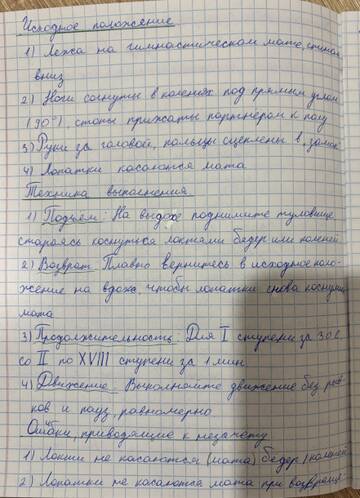 Исходное положение
1) Лежа на гимнастическом мате, спиной
вниз
2) Ноги согнуты в коленях под прямым углом
(90°), стопы прижаты партнером к полу
3) Руки за головой, пальцы сцеплены в „замок"
4) Лопатки касаются мата
Техника выполнения
1) Подъем: На выдохе поднимите туловище
стараясь коснуться локтями бедер или коленей
2) Возврат Плавно вернитесь в исходное поло-
жение на вдохе, чтобы лопатки снова коснулись
мата
3) Продолжительность: Для I ступени за 30 с.
со II по XVIII ступени за 1 мин
4) Движение: Выполняйте движение без рыв-
ков и пауз, равномерно
Ошибки, приводящие к незачету
1) Локти не касаются (мата) бедер/коленей
2) Лопатки не касаются мата при возврате